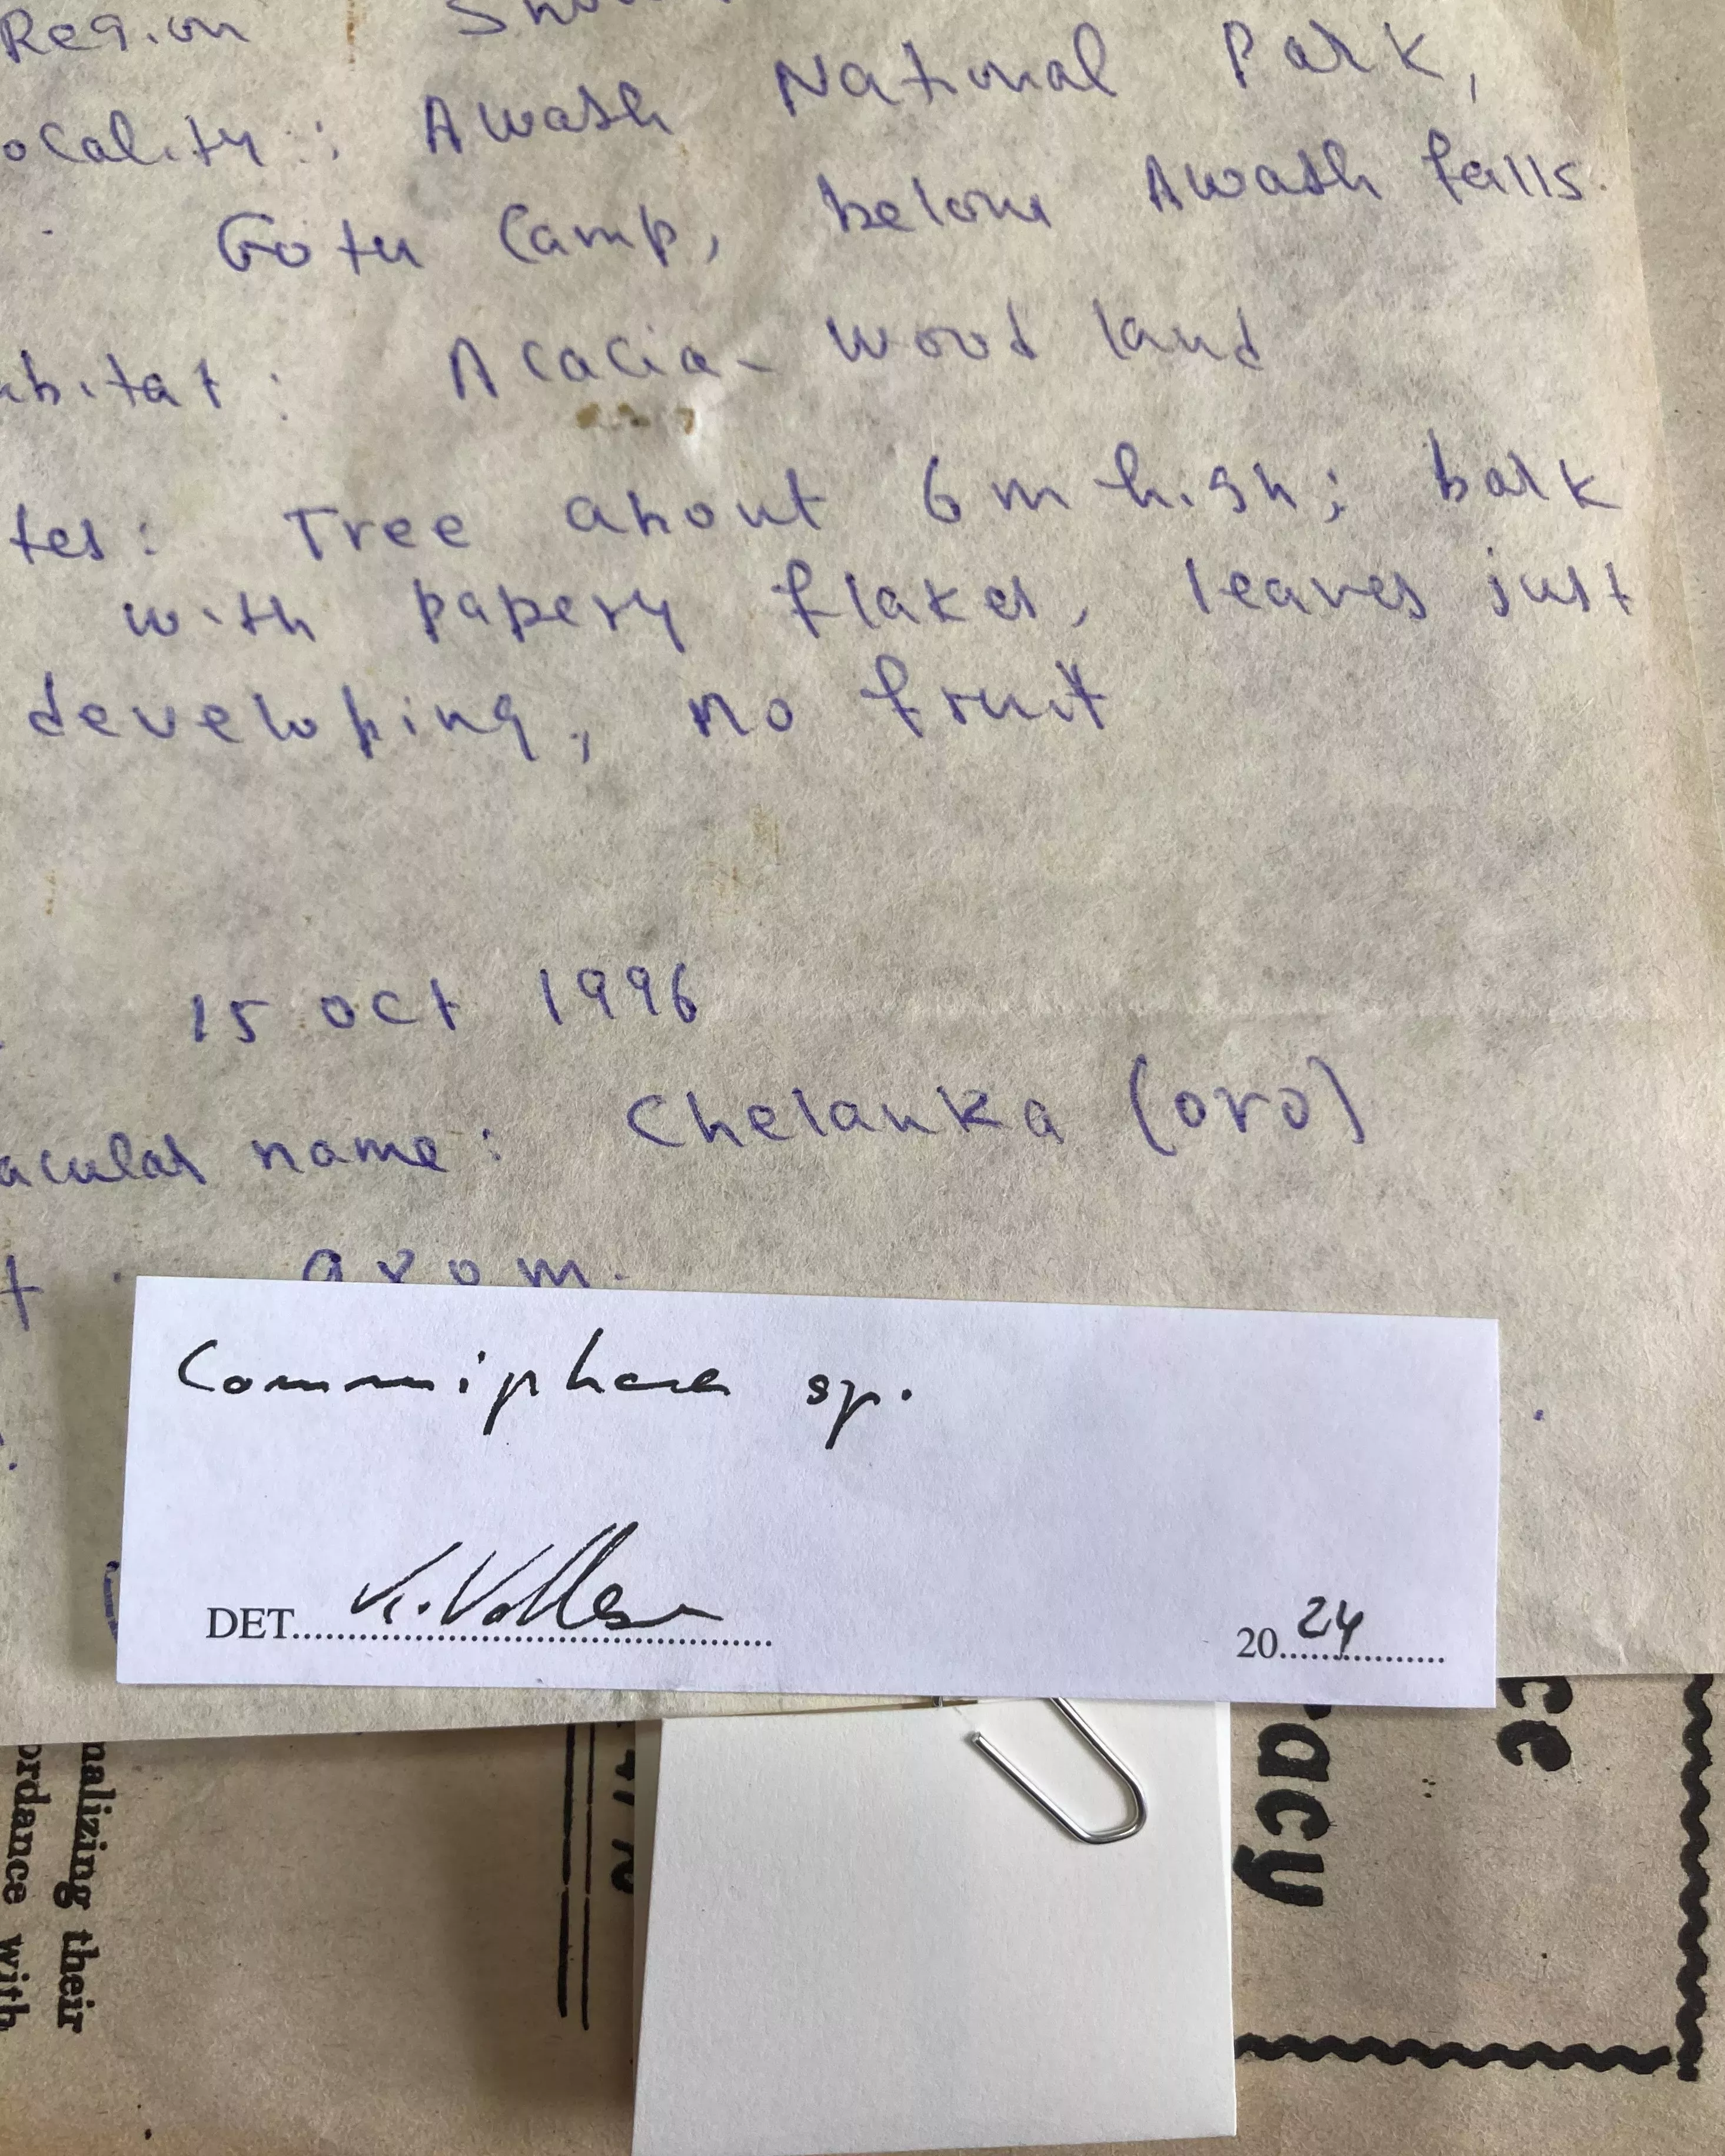 Region
ocality: Awash National Park,
Gotu Camp, below Awash falls.
abitat: Acacia- wood land
tes: Tree about 6 m high; bark
with papery flakes, leaves just
developing, no fruit
15 oct 1996
acular name: Chelanka (oro)
t arom.
Commiphora sp.
DET. K. Vollesen 2024
ce
racy
nalizing their
ordance with